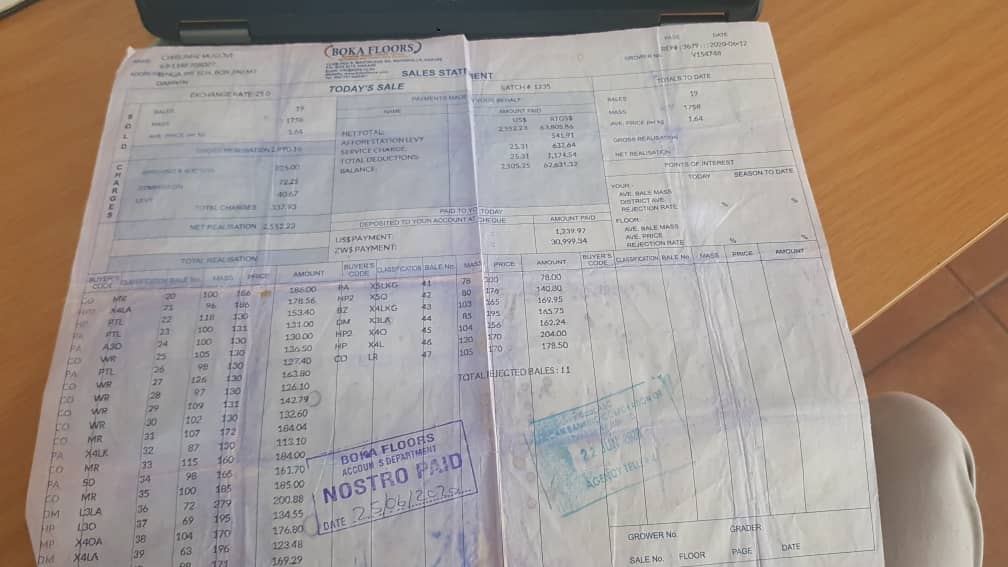 BOKA FLOORS
SALES STATEMENT
PAGE DATE
REF# : 3679 : : 2020-06-12
GROWER No. V154748
EXCHANGE RATE: 25.0
TODAY'S SALE
BATCH # 1235
TOTALS TO DATE
SOLD
BALES 19
MASS 1758
AVE. PRICE per kg 1.64
PAYMENTS MADE YOUR BEHALF
NAME AMOUNT PAID
US$ RTGS$
NET TOTAL: 2,552.23 63,805.86
AFFORESTATION LEVY 541.91
SERVICE CHARGE: 25.31 632.64
TOTAL DEDUCTIONS: 25.31 1,174.54
BALANCE: 2,505.25 62,631.32
BALES 19
MASS 1758
AVE. PRICE per kg 1.64
GROSS REALISATION
NET REALISATION
CHARGES
225.00
COMMISSION 72.25
LEVY 40.67
TOTAL CHARGES 337.93
NET REALISATION 2,552.23
TOTAL REALISATION
PAID TO YOU TODAY
DEPOSITED TO YOUR ACCOUNT AT CHEQUE AMOUNT PAID
US$ PAYMENT: 1,239.97
ZW$ PAYMENT: 30,999.34
POINTS OF INTEREST
TODAY SEASON TO DATE
YOUR:-
AVE. BALE MASS
DISTRICT AVE.
REJECTION RATE % %
FLOOR:
AVE. BALE MASS
AVE. PRICE
REJECTION RATE % %
BUYER'S CODE CLASSIFICATION BALE No. MASS PRICE AMOUNT
CO MR 20 100 186 186.00
X4LA 21 96 186 178.56
PTL 22 118 130 153.40
PTL 23 100 131 131.00
A3O 24 100 130 130.00
CO WR 25 105 130 136.50
PA PTL 26 98 130 127.40
CO WR 27 126 130 163.80
CO WR 28 97 130 126.10
CO WR 29 109 131 142.79
CO WR 30 102 130 132.60
CO MR 31 107 172 184.04
PA X4LK 32 87 130 113.10
CO MR 33 115 160 184.00
PA 34 98 165 161.70
CO MR 35 100 185 185.00
DM L3LA 36 72 279 200.88
HP L3O 37 69 195 134.55
MP X4OA 38 104 170 176.80
DM X4LA 39 63 196 123.48
171 169.29
BUYER'S CODE CLASSIFICATION BALE No. MASS PRICE AMOUNT
PA X5LKG 41 78 78.00
HP2 X5O 42 80 176 140.80
BZ X4LKG 43 103 165 169.95
DM X3LA 44 85 195 165.75
HP2 X4O 45 104 156 162.24
HP X4L 46 120 170 204.00
CO LR 47 105 170 178.50
TOTAL REJECTED BALES : 11
BUYER'S CODE CLASSIFICATION BALE No. MASS PRICE AMOUNT
BOKA FLOORS
ACCOUNTS DEPARTMENT
NOSTRO PAID
DATE 25/06/2020
GROWER No. GRADER
SALE No. FLOOR PAGE DATE